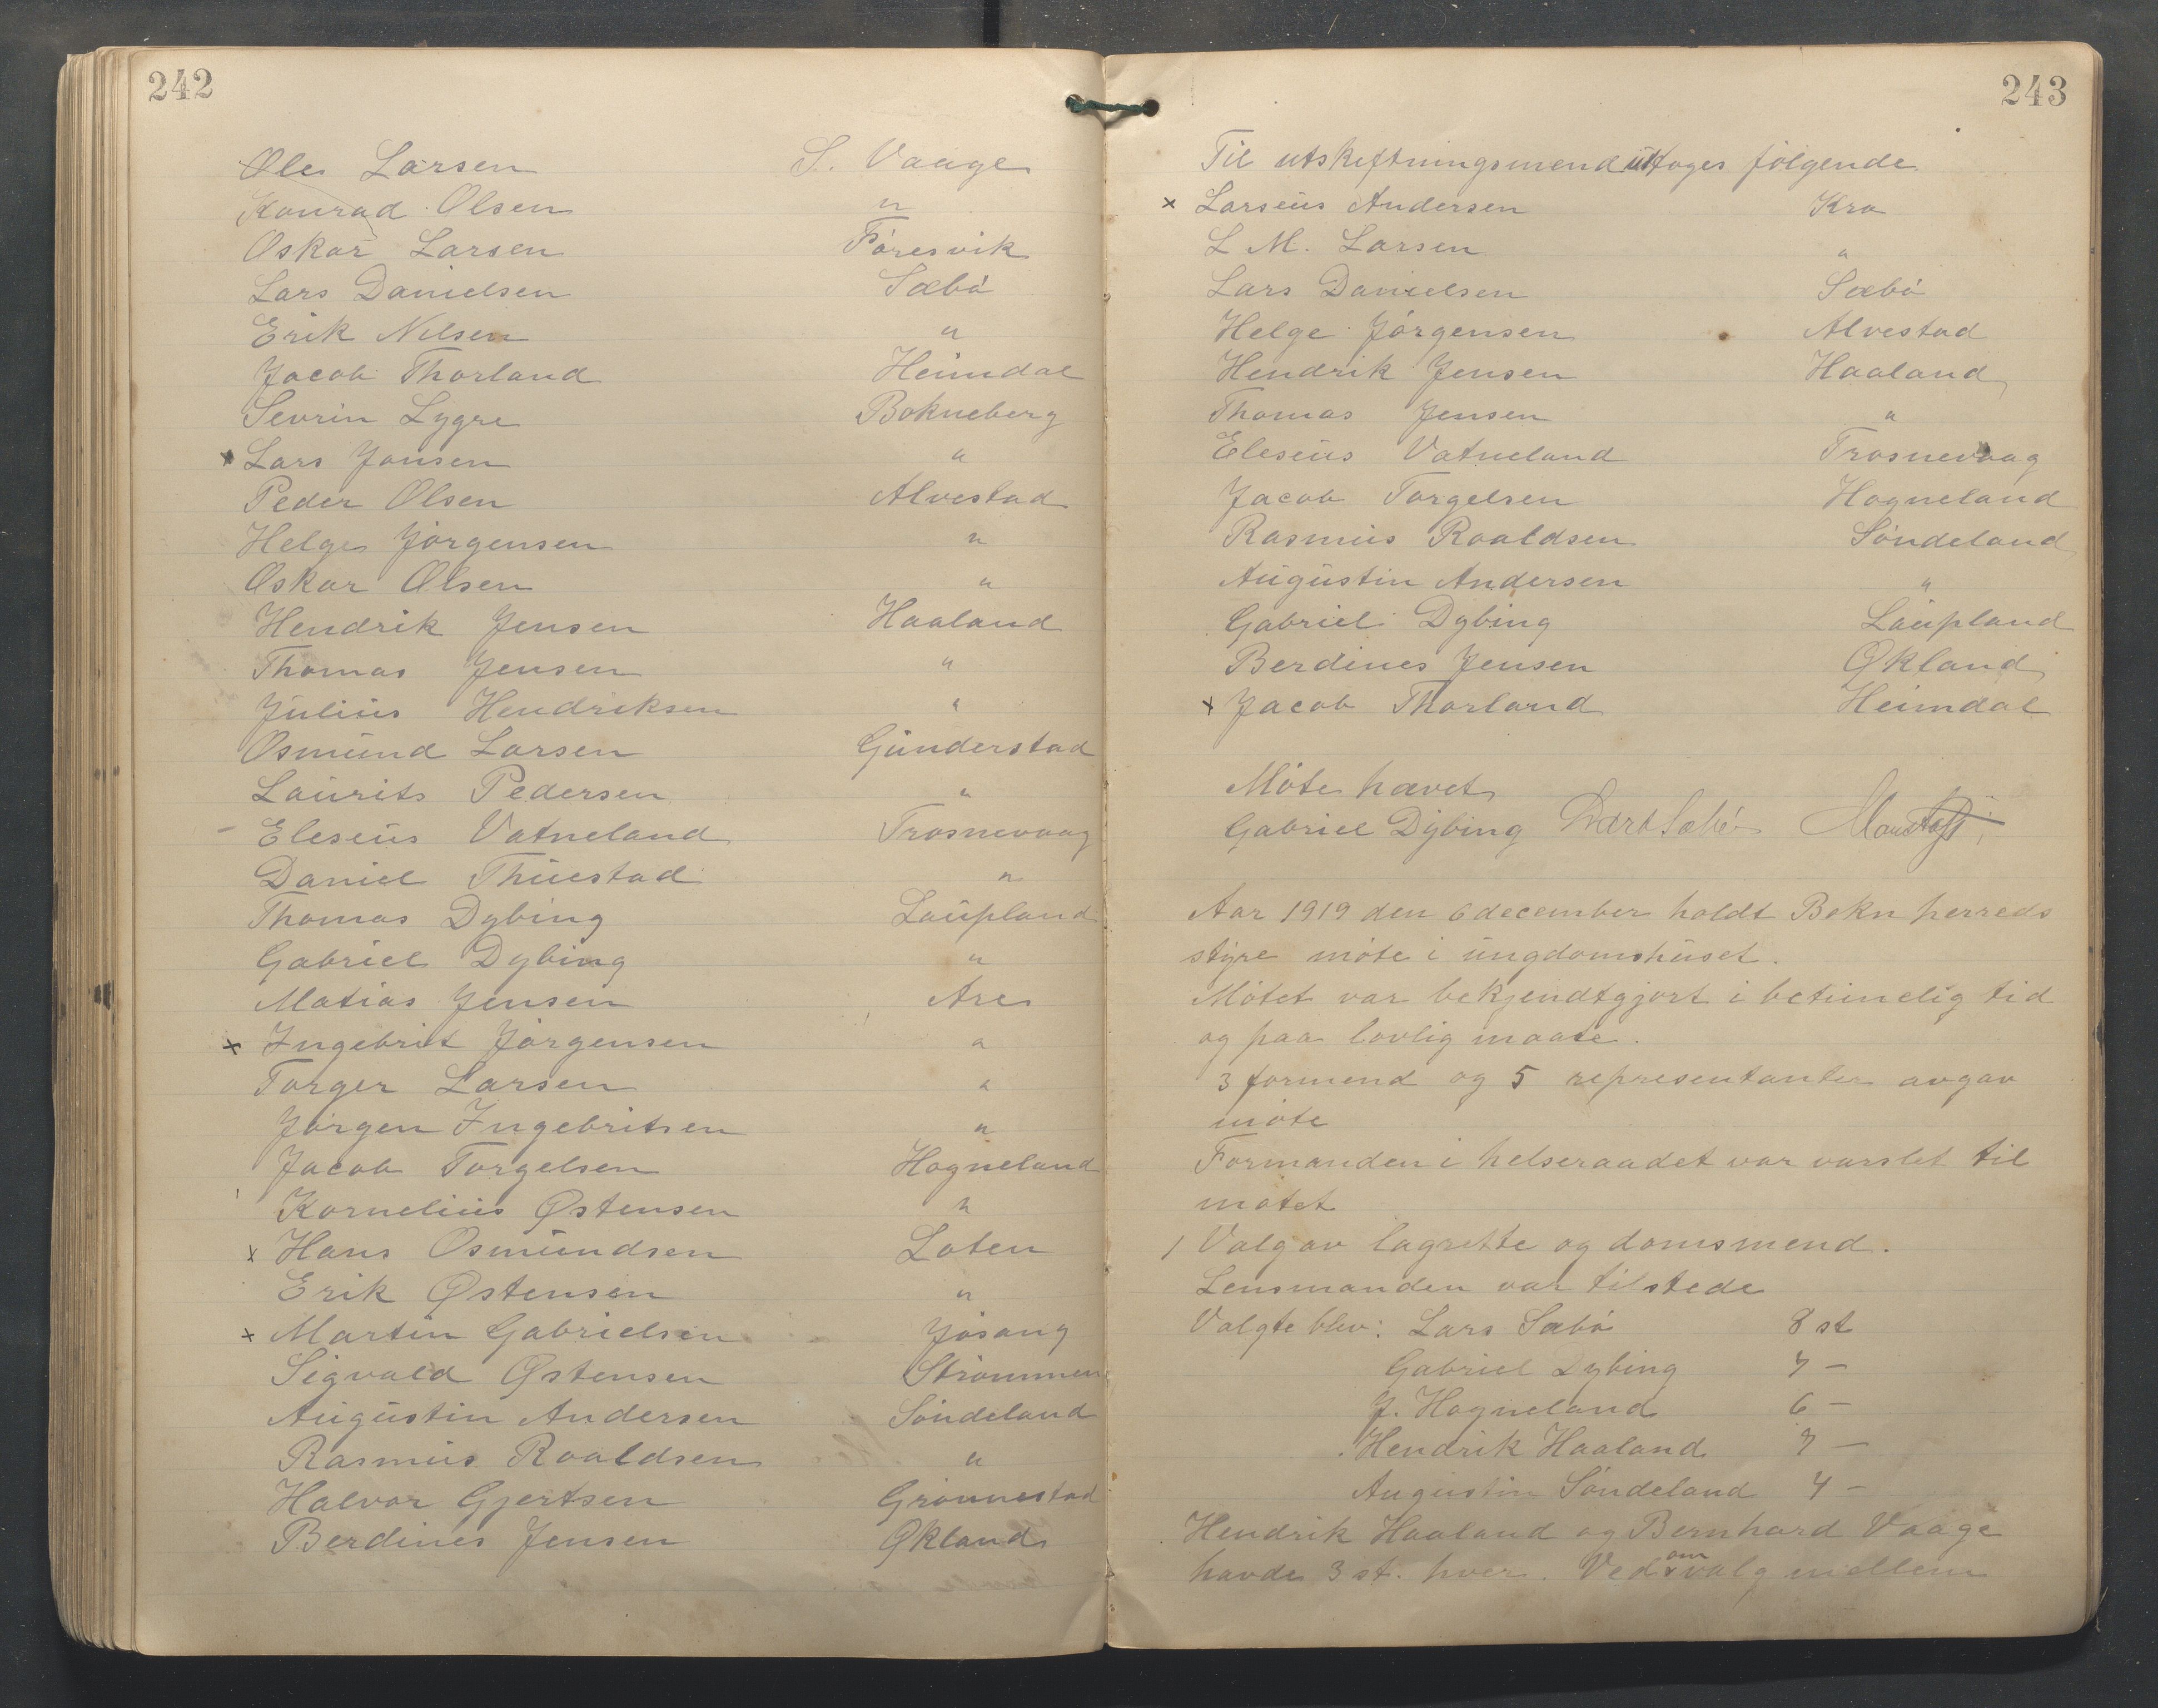 242
Ole Larsen S. Vaage
Konrad Olsen "
Oskar Larsen Føresvik
Lars Danielsen Sæbø
Erik Nilsen "
Jacob Thorland Heimdal
Sevrin Lygre Bokneberg
x Lars Jonsen "
Peder Olsen Alvestad
Helge Jørgensen "
Oskar Olsen "
Hendrik Jensen Haaland
Thomas Jensen "
Julius Hendriksen "
Osmund Larsen Gunderstad
Laurits Pedersen "
- Eleseus Vatneland Trosnevaag
Daniel Thuestad "
Thomas Dybing Laupland
Gabriel Dybing "
Matias Jensen Are
x Ingebrit Jørgensen "
Torger Larsen "
Jørgen Ingebritsen "
Jacob Torgelsen Hogneland
Kornelius Østensen "
x Hans Osmundsen Loten
Erik Østensen "
x Martin Gabrielsen Jøsang
Sigvald Østensen Strømmen
Augustin Andersen Søndeland
Rasmus Roaldsen "
Halvor Gjertsen Grønnestad
Berdines Jensen Økland
243
Til utskiftningsmend uttoges følgende
x Larseus Andersen Kro
L M. Larsen "
Lars Danielsen Sæbø
Helge Jørgensen Alvestad
Hendrik Jensen Haaland
Thomas Jensen "
Eleseus Vatneland Trosnevaag
Jacob Torgelsen Hogneland
Rasmus Roaldsen Søndeland
Augustin Andersen "
Gabriel Dybing Laupland
Berdines Jensen Økland
x Jacob Thorland Heimdal
Møte hævet
Gabriel Dybing Lars Sæbø
Aar 1919 den 6 december holdt Bokn herreds
styre møte i ungdomshuset.
Møtet var bekjendtgjort i betimelig tid
og paa lovlig maate.
3 formend og 5 representanter avgav
møte
Formanden i helseraadet var varslet til
møtet
1 Valg av lagrette og domsmend.
Lensmanden var tilstede
Valgte blev: Lars Sæbø 8 st
Gabriel Dybing 7 —
J. Hogneland 6 —
Hendrik Haaland 7 —
Augustin Søndeland 4 —
Hendrik Haaland og Bernhard Vaage
havde 3 st. hver. Ved omvalg mellem